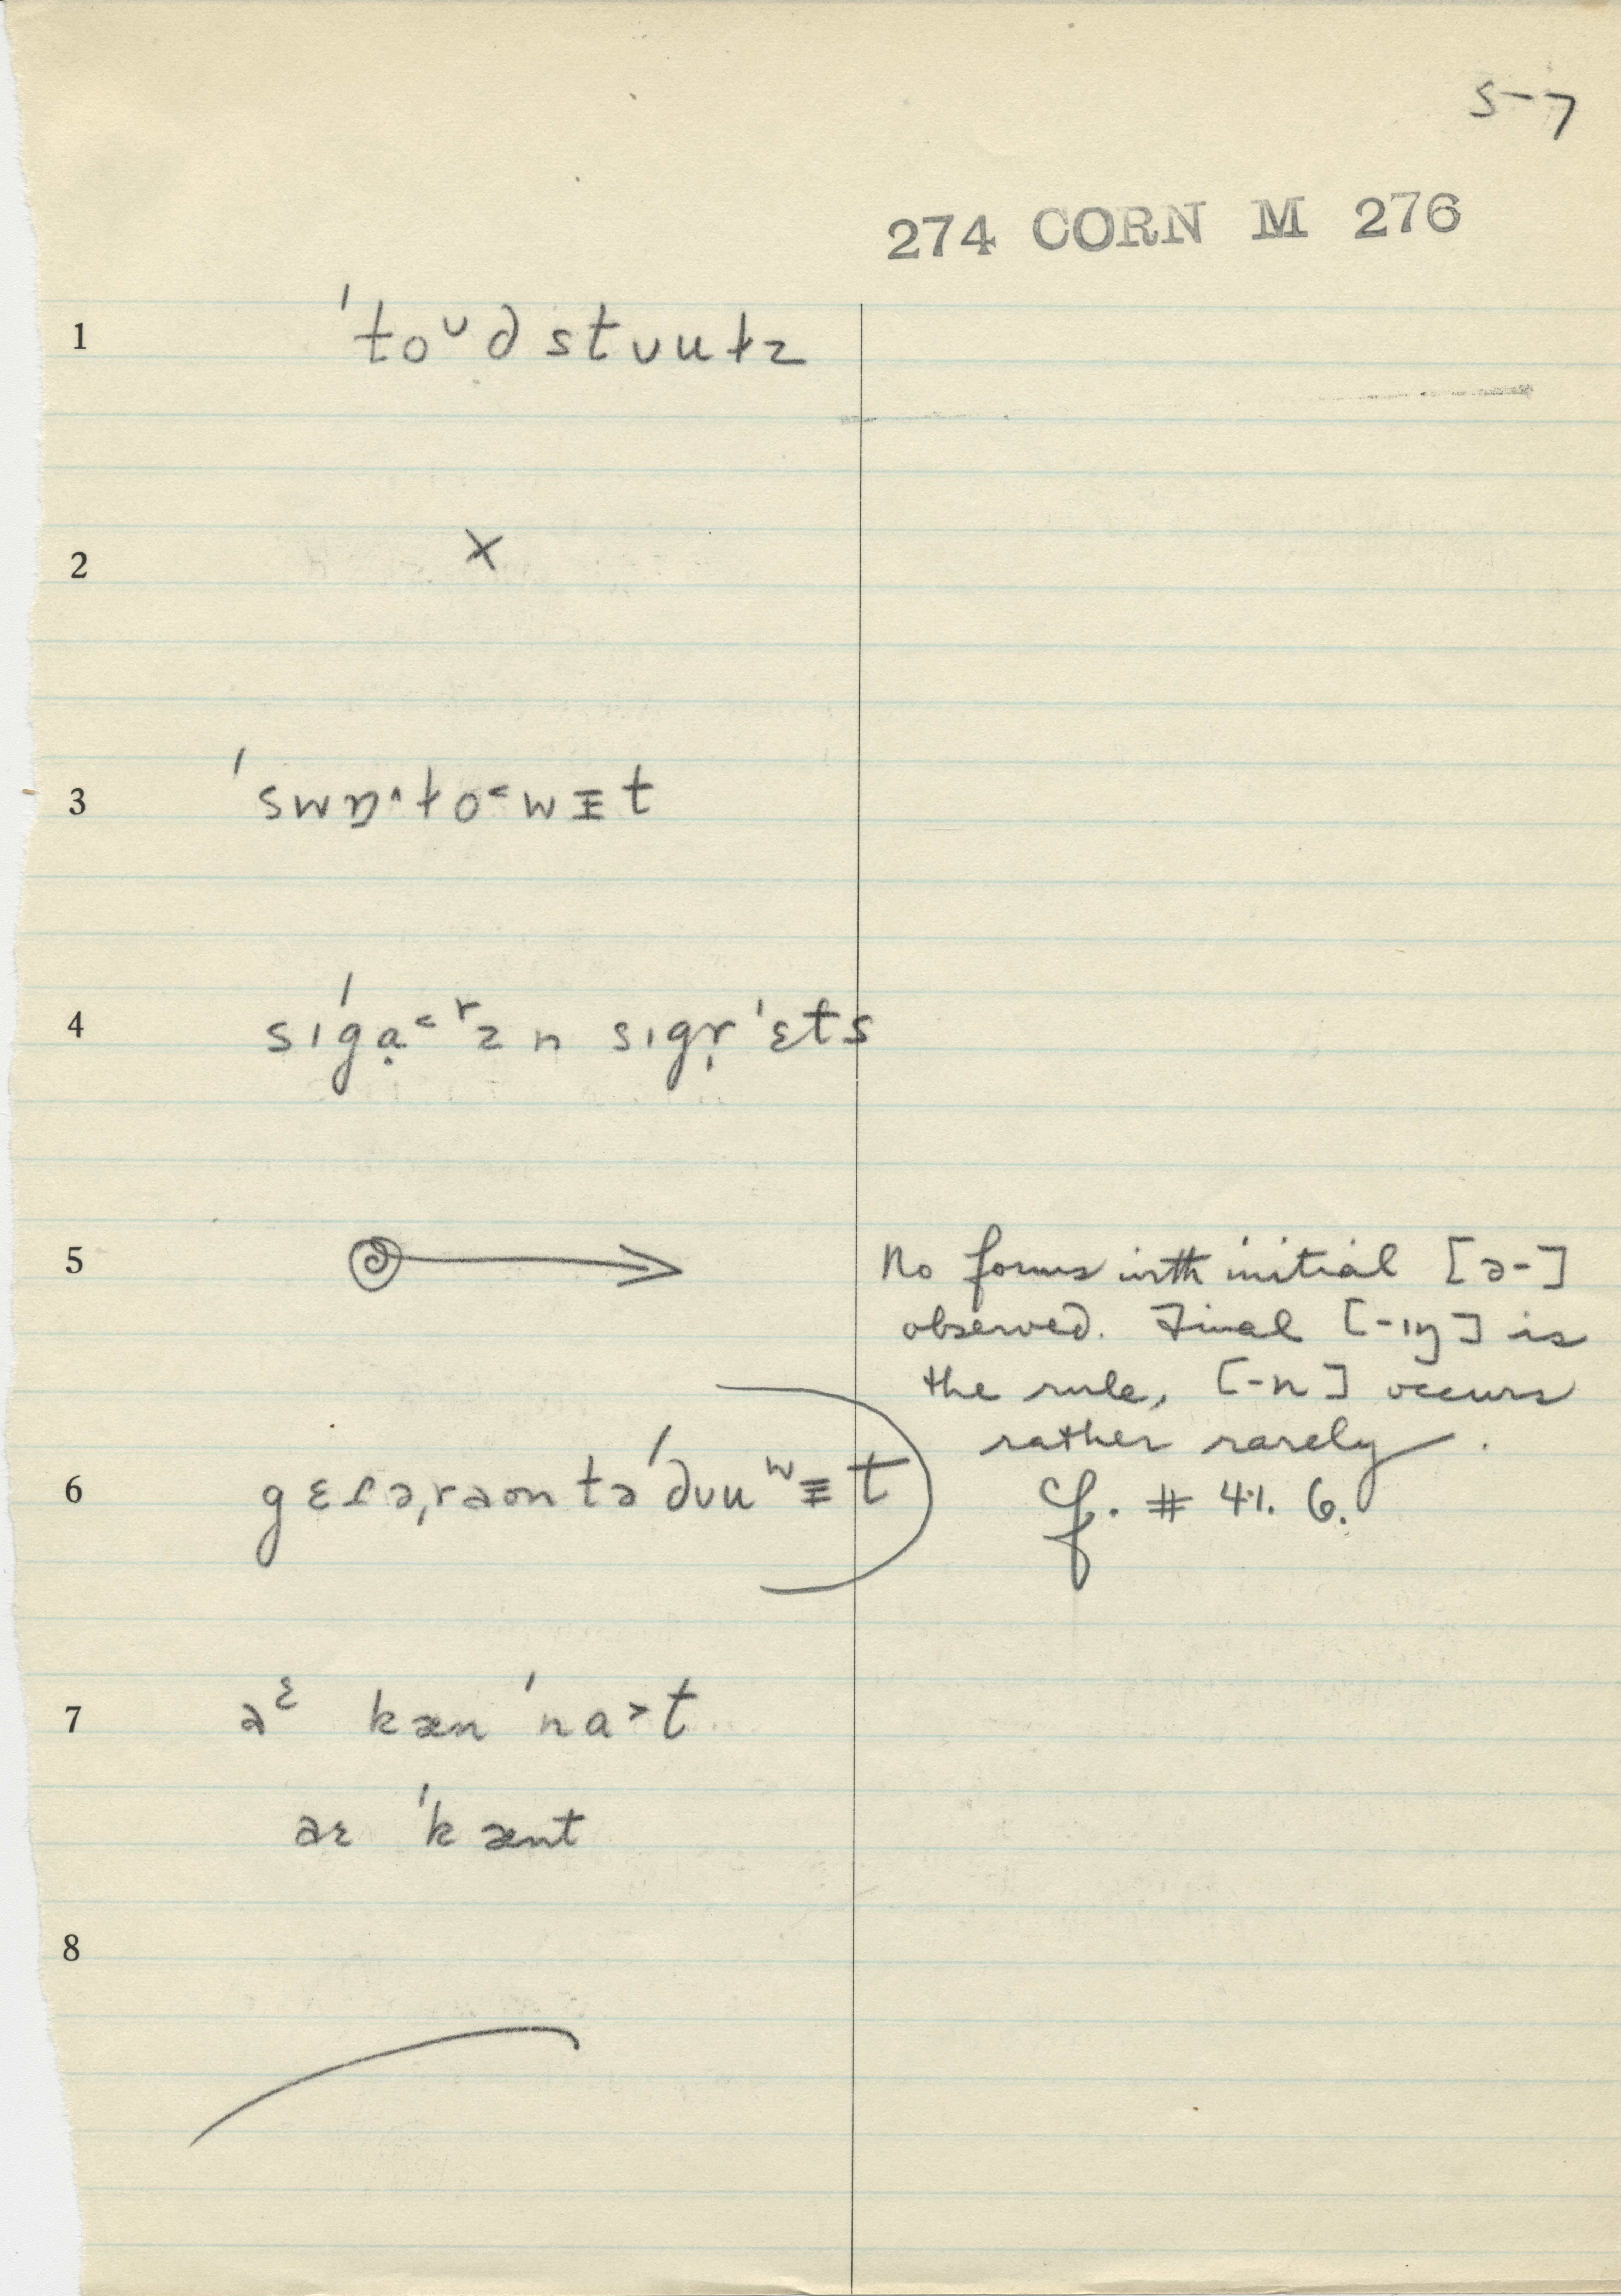 5-7
274 CORN M 276
1 ˈtoᶷd stʊutz
2 x
3 ˈswɒ˄to˂wɪt
4 sɪ́ga̤˂ʳzn sɪgr̩ˈɛts
5 No forms with initial [ə-]
observed. Final [-ɪŋ] is
the rule, [-n] occurs
rather rarely.
6 cf. # 41. 6.
7 əᵋ kæn ˈna˃t
aɛ ˈkænt
8